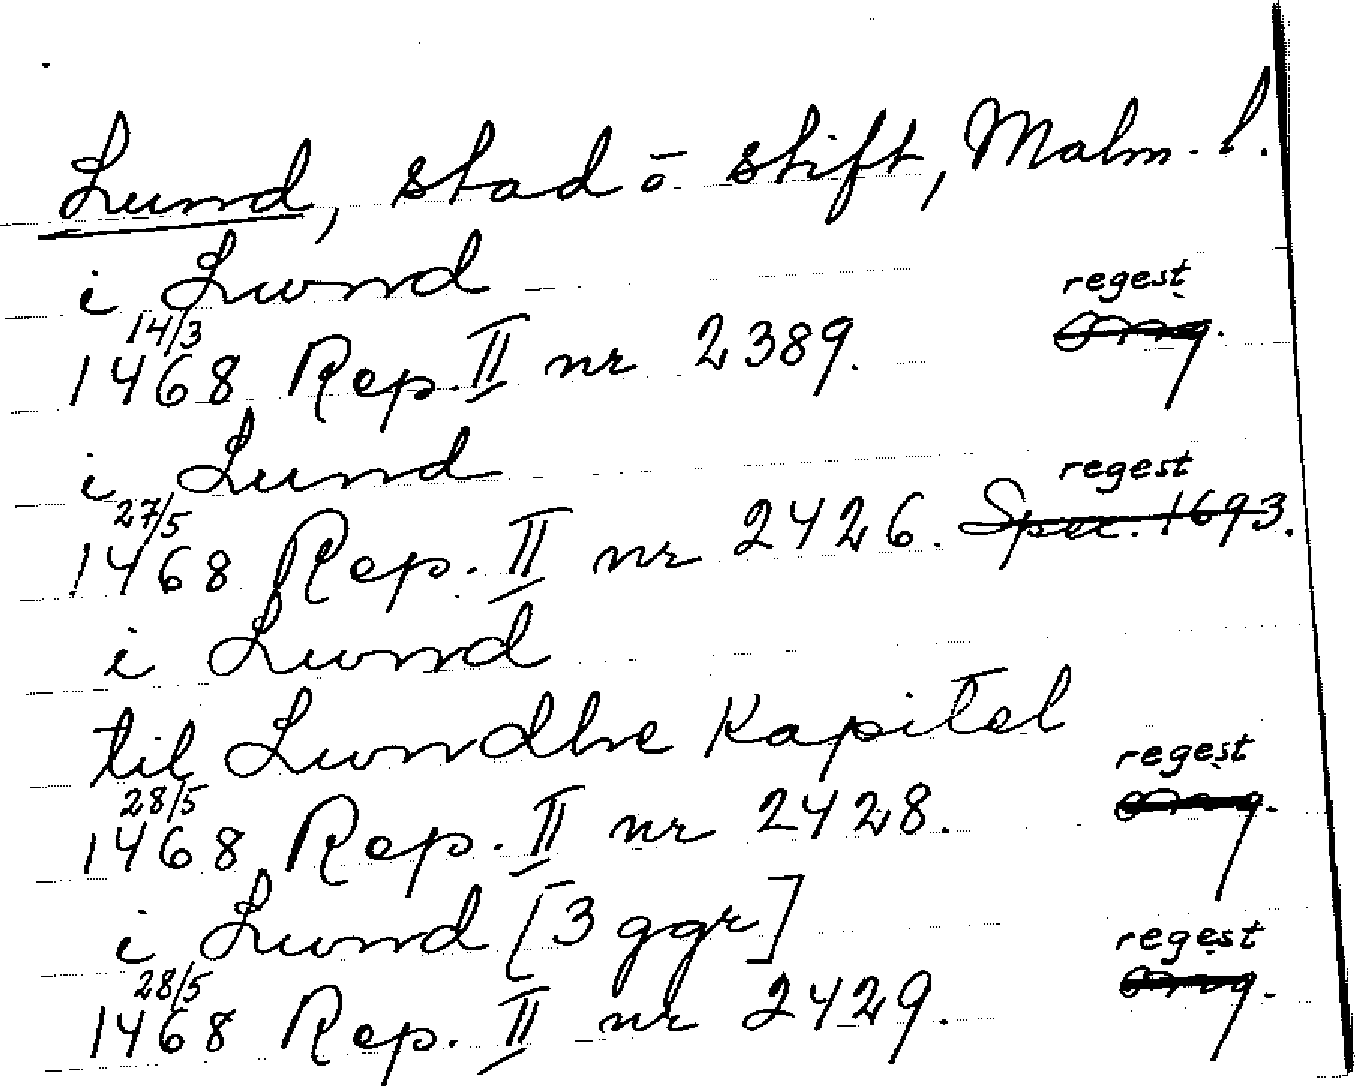 Lund, stad ō stift, Malm. l.
i Lwnd
regest
14/3
1468 Rep. II nr 2389. Orig.
i Lund
regest
27/5
1468 Rep. II nr 2426. Spec. 1693.
i Lwnd
til Lwndhe Kapitel
regest
28/5
1468 Rep. II nr 2428. Orig.
i Lwnd [3 ggr]
regest
28/5
1468 Rep. II nr 2429. Orig.